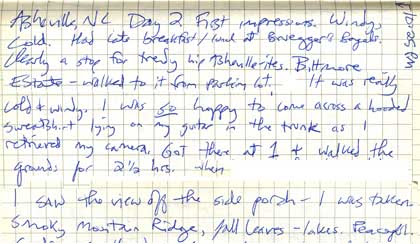 Asheville, NC Day 2 First impressions. Windy,
Cold. Had late breakfast/lunch at Bruegger's Bagels.
Clearly a stop for trendy hip Ashevillerites. Biltmore
Estate - walked to it from parking lot. It was really
cold & windy. I was so happy to come across a hooded
sweatshirt lying on my guitar in the trunk as I
retrieved my camera. Got there at 1 & walked the
grounds for 2 1/2 hrs. When
I saw the view off the side porch - I was taken.
Smoky Mountain Ridge, fall leaves - lakes. Peaceful.